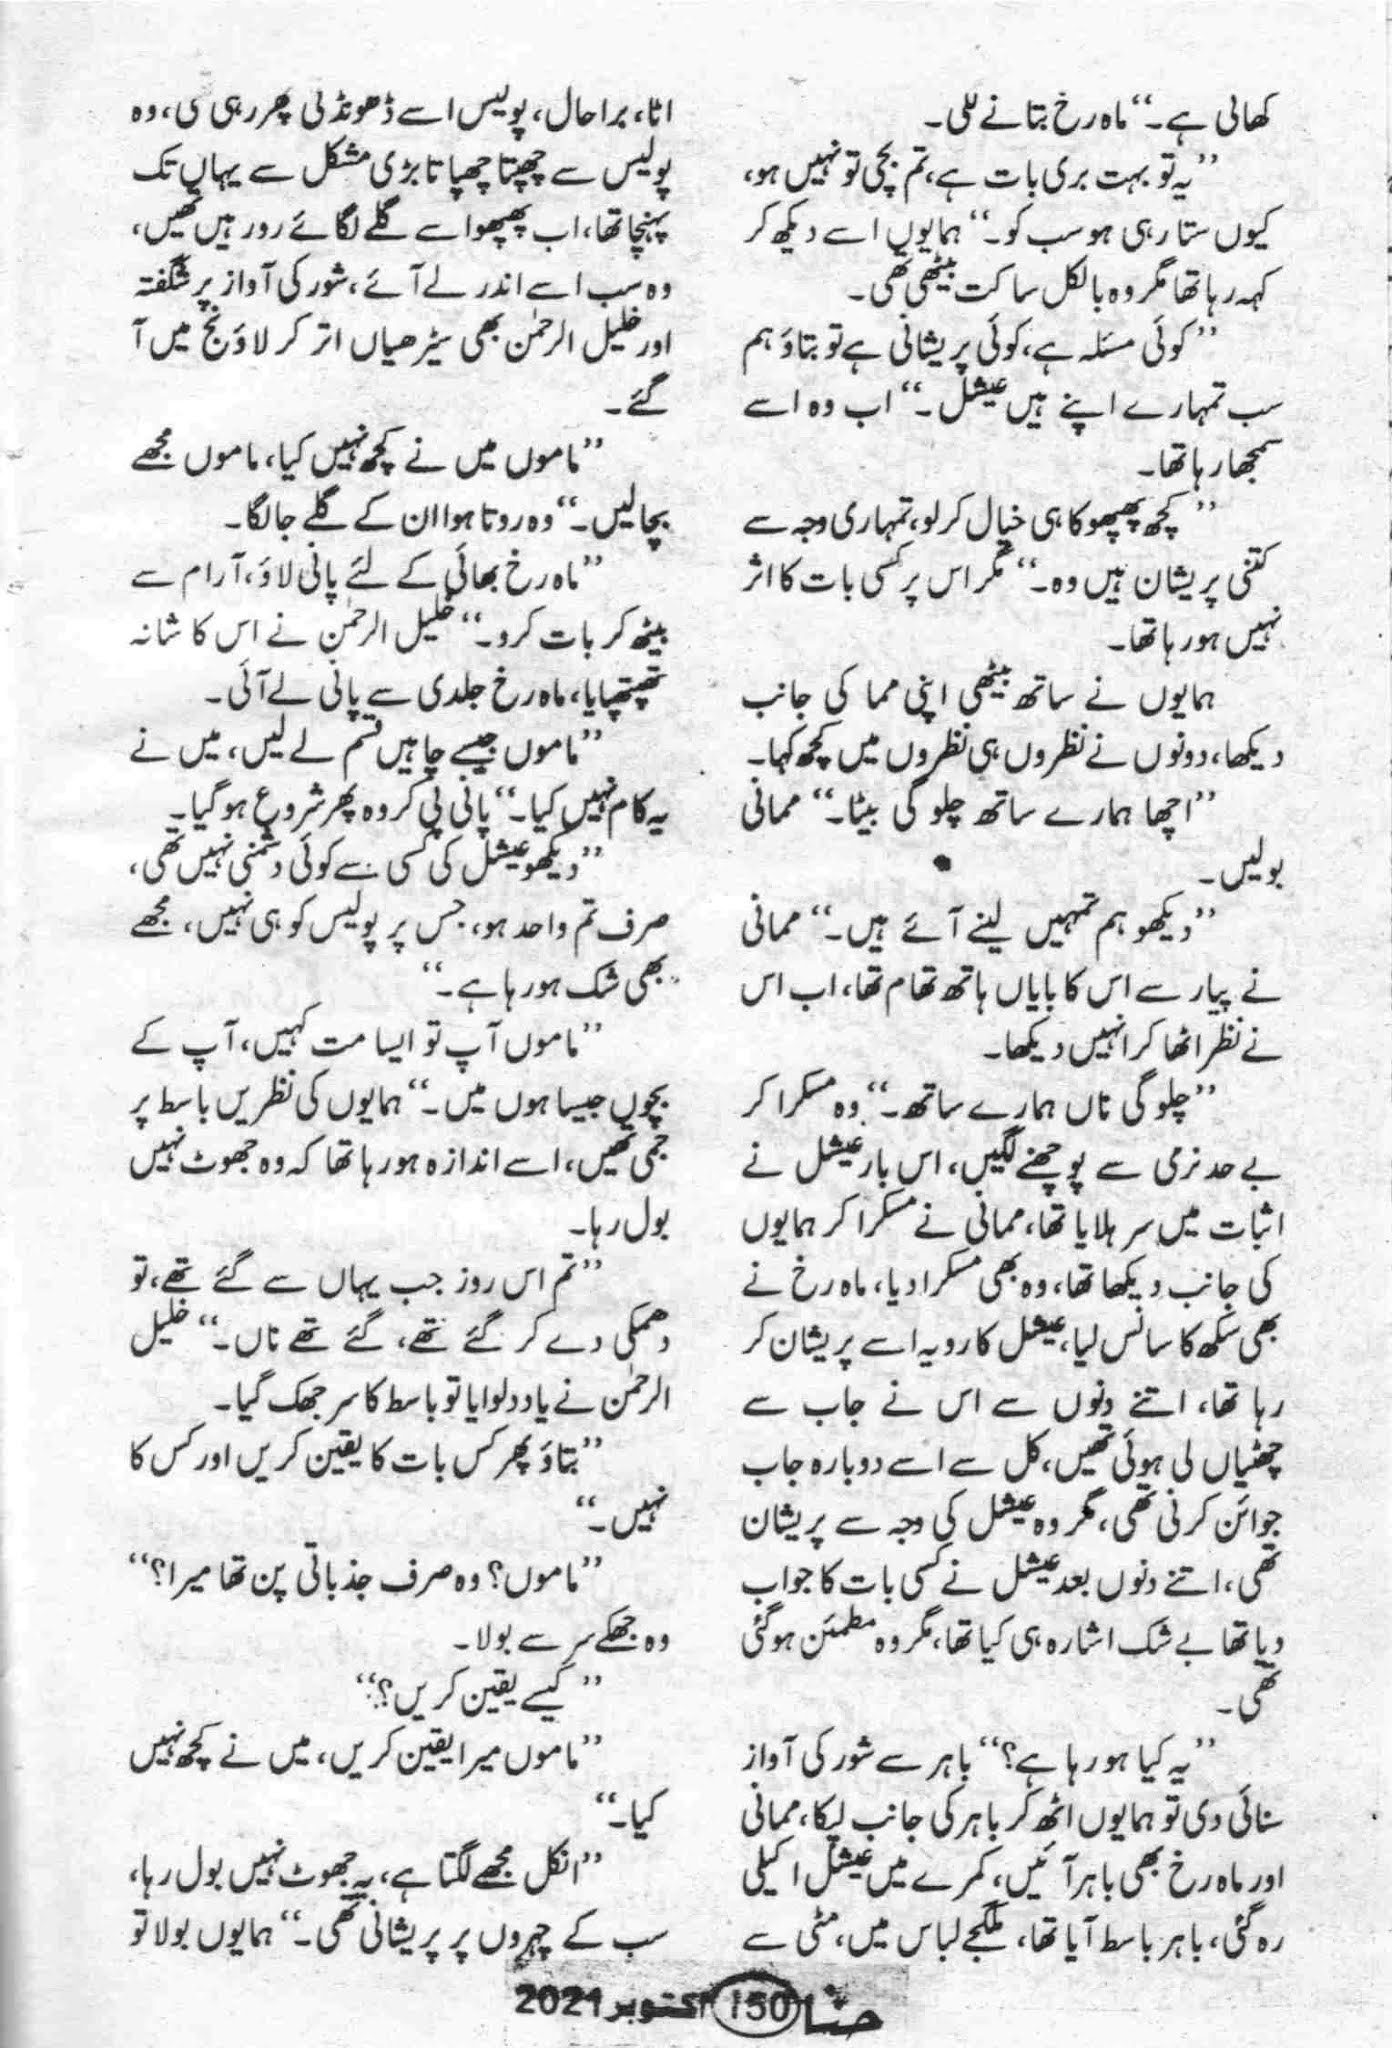 کھاتی ہے۔‘‘ ماہ رخ بتانے لگی۔
’’یہ تو بہت بری بات ہے، تم بچی تو نہیں ہو،
کیوں ستا رہی ہو سب کو۔‘‘ ہمایوں اسے دیکھ کر
کہہ رہا تھا مگر وہ بالکل ساکت بیٹھی تھی۔
’’کوئی مسئلہ ہے، کوئی پریشانی ہے تو بتاؤ ہم
سب تمہارے اپنے ہیں عیشل۔‘‘ اب وہ اسے
سمجھا رہا تھا۔
’’کچھ پھپھو کا ہی خیال کر لو، تمہاری وجہ سے
کتنی پریشان ہیں وہ۔‘‘ مگر اس پر کسی بات کا اثر
نہیں ہو رہا تھا۔
ہمایوں نے ساتھ بیٹھی اپنی مما کی جانب
دیکھا، دونوں نے نظروں ہی نظروں میں کچھ کہا۔
’’اچھا ہمارے ساتھ چلو گی بیٹا۔‘‘ ممانی
بولیں۔
’’دیکھو ہم تمہیں لینے آئے ہیں۔‘‘ ممانی
نے پیار سے اس کا بایاں ہاتھ تھام تھا، اب اس
نے نظر اٹھا کر انہیں دیکھا۔
’’چلو گی ناں ہمارے ساتھ۔‘‘ وہ مسکرا کر
بے حد نرمی سے پوچھنے لگیں، اس بار عیشل نے
اثبات میں سر ہلایا تھا، ممانی نے مسکرا کر ہمایوں
کی جانب دیکھا تھا، وہ بھی مسکرا دیا، ماہ رخ نے
بھی سکھ کا سانس لیا، عیشل کا رویہ اسے پریشان کر
رہا تھا، اتنے دنوں سے اس نے جاب سے
چھٹیاں لی ہوئی تھیں، کل سے اسے دوبارہ جاب
جوائن کرنی تھی، مگر وہ عیشل کی وجہ سے پریشان
تھی، اتنے دنوں بعد عیشل نے کسی بات کا جواب
دیا تھا بے شک اشارہ ہی کیا تھا، مگر وہ مطمئن ہو گئی
تھی۔
’’یہ کیا ہو رہا ہے؟‘‘ باہر سے شور کی آواز
سنائی دی تو ہمایوں اٹھ کر باہر کی جانب لپکا، ممانی
اور ماہ رخ بھی باہر آئیں، کمرے میں عیشل اکیلی
رہ گئی، باہر باسط آیا تھا، ملگجے لباس میں، مٹی سے
اٹا، برا حال، پولیس اسے ڈھونڈتی پھر رہی تھی، وہ
پولیس سے چھپتا چھپاتا بڑی مشکل سے یہاں تک
پہنچا تھا، اب پھپھو اسے گلے لگائے رو رہیں تھیں،
وہ سب اسے اندر لے آئے، شور کی آواز پر شگفتہ
اور خلیل الرحمٰن بھی سیڑھیاں اتر کر لاؤنج میں آ
گئے۔
’’ماموں میں نے کچھ نہیں کیا، ماموں مجھے
بچا لیں۔‘‘ وہ روتا ہوا ان کے گلے جا لگا۔
’’ماہ رخ بھائی کے لئے پانی لاؤ، آرام سے
بیٹھ کر بات کرو۔‘‘ خلیل الرحمٰن نے اس کا شانہ
تھپتھپایا، ماہ رخ جلدی سے پانی لے آئی۔
’’ماموں جیسے چاہیں قسم لے لیں، میں نے
یہ کام نہیں کیا۔‘‘ پانی پی کر وہ پھر شروع ہو گیا۔
’’دیکھو عیشل کی کسی سے کوئی دشمنی نہیں تھی،
صرف تم واحد ہو، جس پر پولیس کو ہی نہیں، مجھے
بھی شک ہو رہا ہے۔‘‘
’’ماموں آپ تو ایسا مت کہیں، آپ کے
بچوں جیسا ہوں میں۔‘‘ ہمایوں کی نظریں باسط پر
جمی تھیں، اسے اندازہ ہو رہا تھا کہ وہ جھوٹ نہیں
بول رہا۔
’’تم اس روز جب یہاں سے گئے تھے، تو
دھمکی دے کر گئے تھے، گئے تھے ناں۔‘‘ خلیل
الرحمٰن نے یاد دلوایا تو باسط کا سر جھک گیا۔
’’بتاؤ پھر کس بات کا یقین کریں اور کس کا
نہیں۔‘‘
’’ماموں؟ وہ صرف جذباتی پن تھا میرا؟‘‘
وہ جھکے سر سے بولا۔
’’کیسے یقین کریں؟‘‘
’’ماموں میرا یقین کریں، میں نے کچھ نہیں
کیا۔‘‘
’’انکل مجھے لگتا ہے، یہ جھوٹ نہیں بول رہا،
سب کے چہروں پر پریشانی تھی۔‘‘ ہمایوں بولا تو
حنا 150 اکتوبر 2021